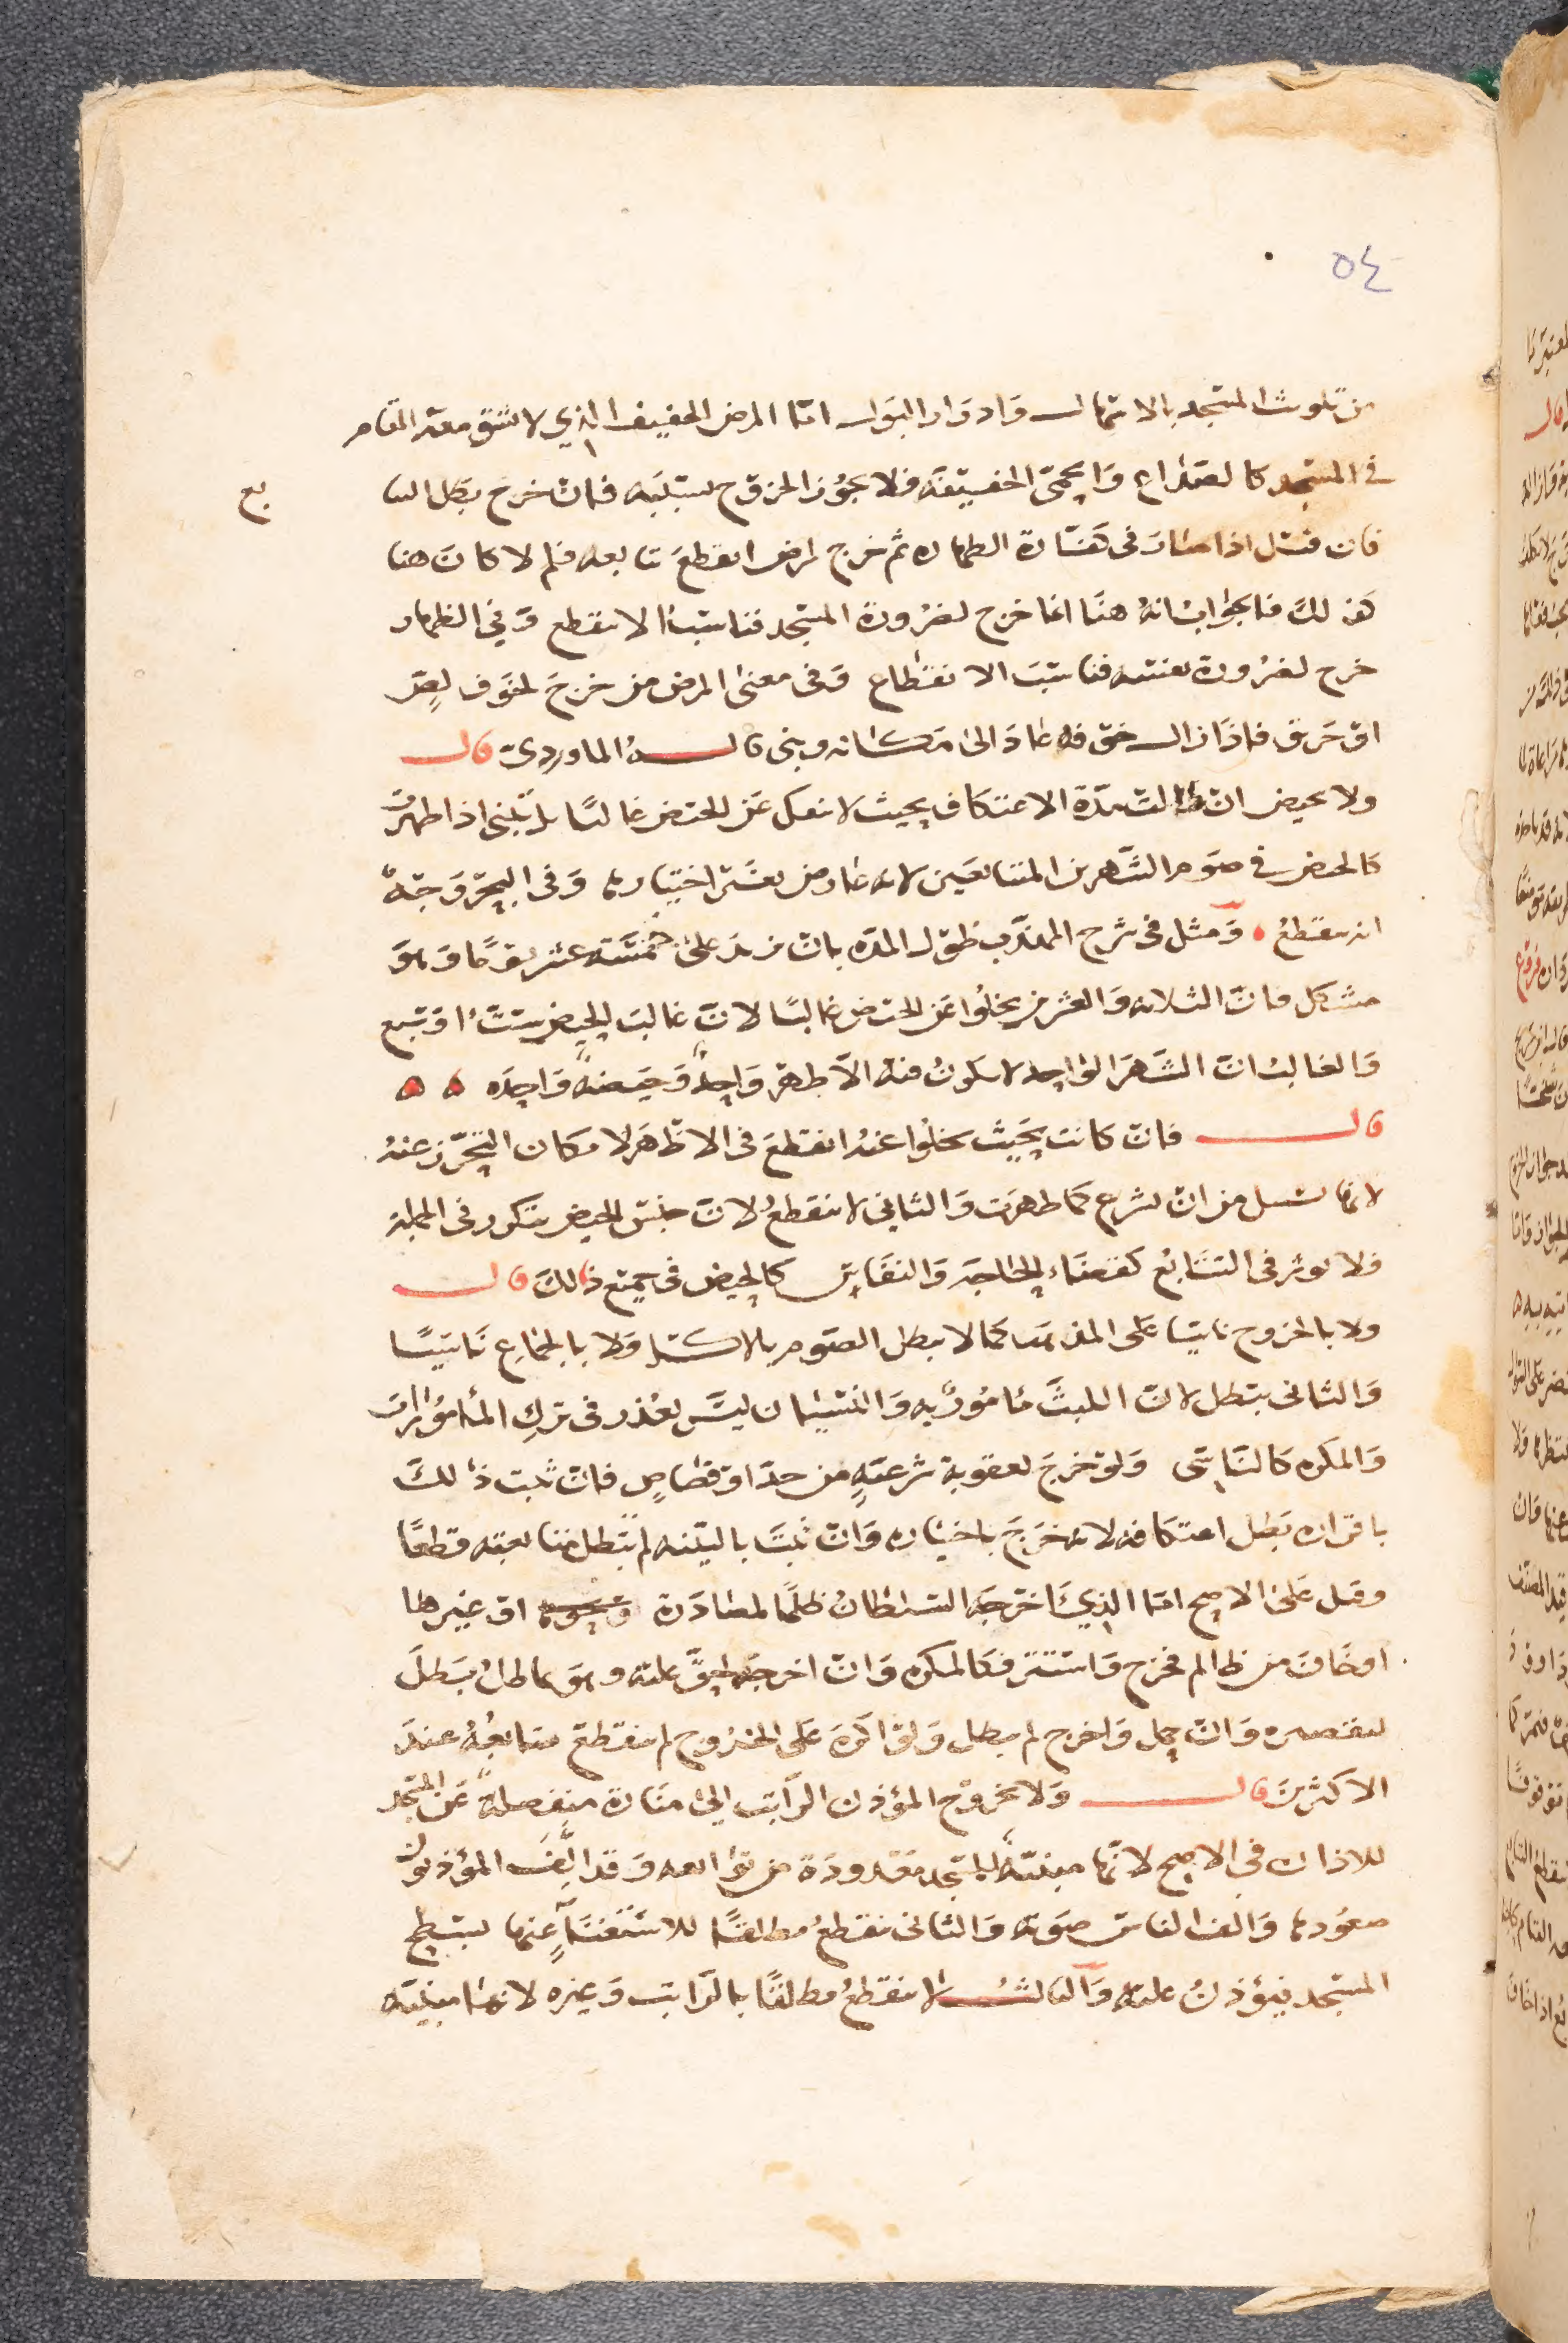 ٥٤
من تلويث المسجد بالاسهال وادرار البول اما المرض الخفيف الذي لا يشق معه المقام
في المسجد كالصداع والحمى الخفيفة فلا يجوز الخروج بسببه فان خرج بطل التتا
بع
فان قيل اذا صار في كفارة الظهاره ثم خرج لمرض انقطع تتابعه فلم لا كان هنا
كذلك فالجواب انه هنا انما خرج لضرورة المسجد فناسب الا ينقطع وفي الظهار
خرج لضرورة نفسه فناسب الانقطاع وفي معنى المرض من خرج لخوف لص
او حريق فاذا زال خوفه عاد الى مكانه وبنى قاله الماوردي قال
ولا بحيض ان طالت مدة الاعتكاف بحيث لا ينفك عن الحيض غالبا بل تبني اذا طهرت
كالحيض في صوم الشهرين المتتابعين لانه عارض بغير اختيارها وفي البحر وجه
انه ينقطع ومثل في شرح المهذب طول المدة بان تزيد على خمسة عشر يوما وهو
مشكل فان الثلاثة والعشرين يخلوا عن الحيض غالبا لان غالب الحيض ست او سبع
والغالب ان الشهر الواحد لا يكون فيه الا طهر واحد وحيضة واحده ه ه
قال فان كانت بحيث يخلوا عنه انقطع في الاظهر لا مكان التحرز عنه
لانها بسبيل من ان تشرع كما طهرت والثاني لا ينقطع لان جنس الحيض يتكرر في الجملة
فلا يؤثر في التتابع كقضاء الحاجة والنفاس كالحيض في جميع ذلك قال
ولا بالخروج ناسيا على المذهب كما لا يبطل الصوم بالاكل ولا بالجماع ناسيا
والثاني يبطل لان اللبث مامور به والنسيان ليس بعذر في ترك المأمورات
والمكره كالناسي ولو خرج لعقوبة شرعية من حد او قصاص فان ثبت ذلك
باقراره بطل اعتكافه لانه خرج باختياره وان ثبت بالبينه لم تبطل تتابعيته قطعا
وقيل على الاصح اما الذي اخرجه السلطان ظلما لمصادرة او غيرها
او خاف من ظالم فخرج واستتر فكالمكره وان اخرجه لحق عليه وهو مماطل بطل
لتقصيره وان حمل واخرج لم يبطل ولو اكره على الخروج لم ينقطع تتابعه عند
الاكثرين قال ولا بخروج المؤذن الراتب الى منارة منفصلة عن المسجد
للاذان في الاصح لانها مبنية للمسجد معدودة من توابعه وقد الف المؤذنون
صعودها والف الناس صوته والثاني ينقطع مطلقا للاستغناء عنها بسطح
المسجد فيؤذن عليه والثالث لا ينقطع مطلقا بالراتب وغيره لانها مبنيه